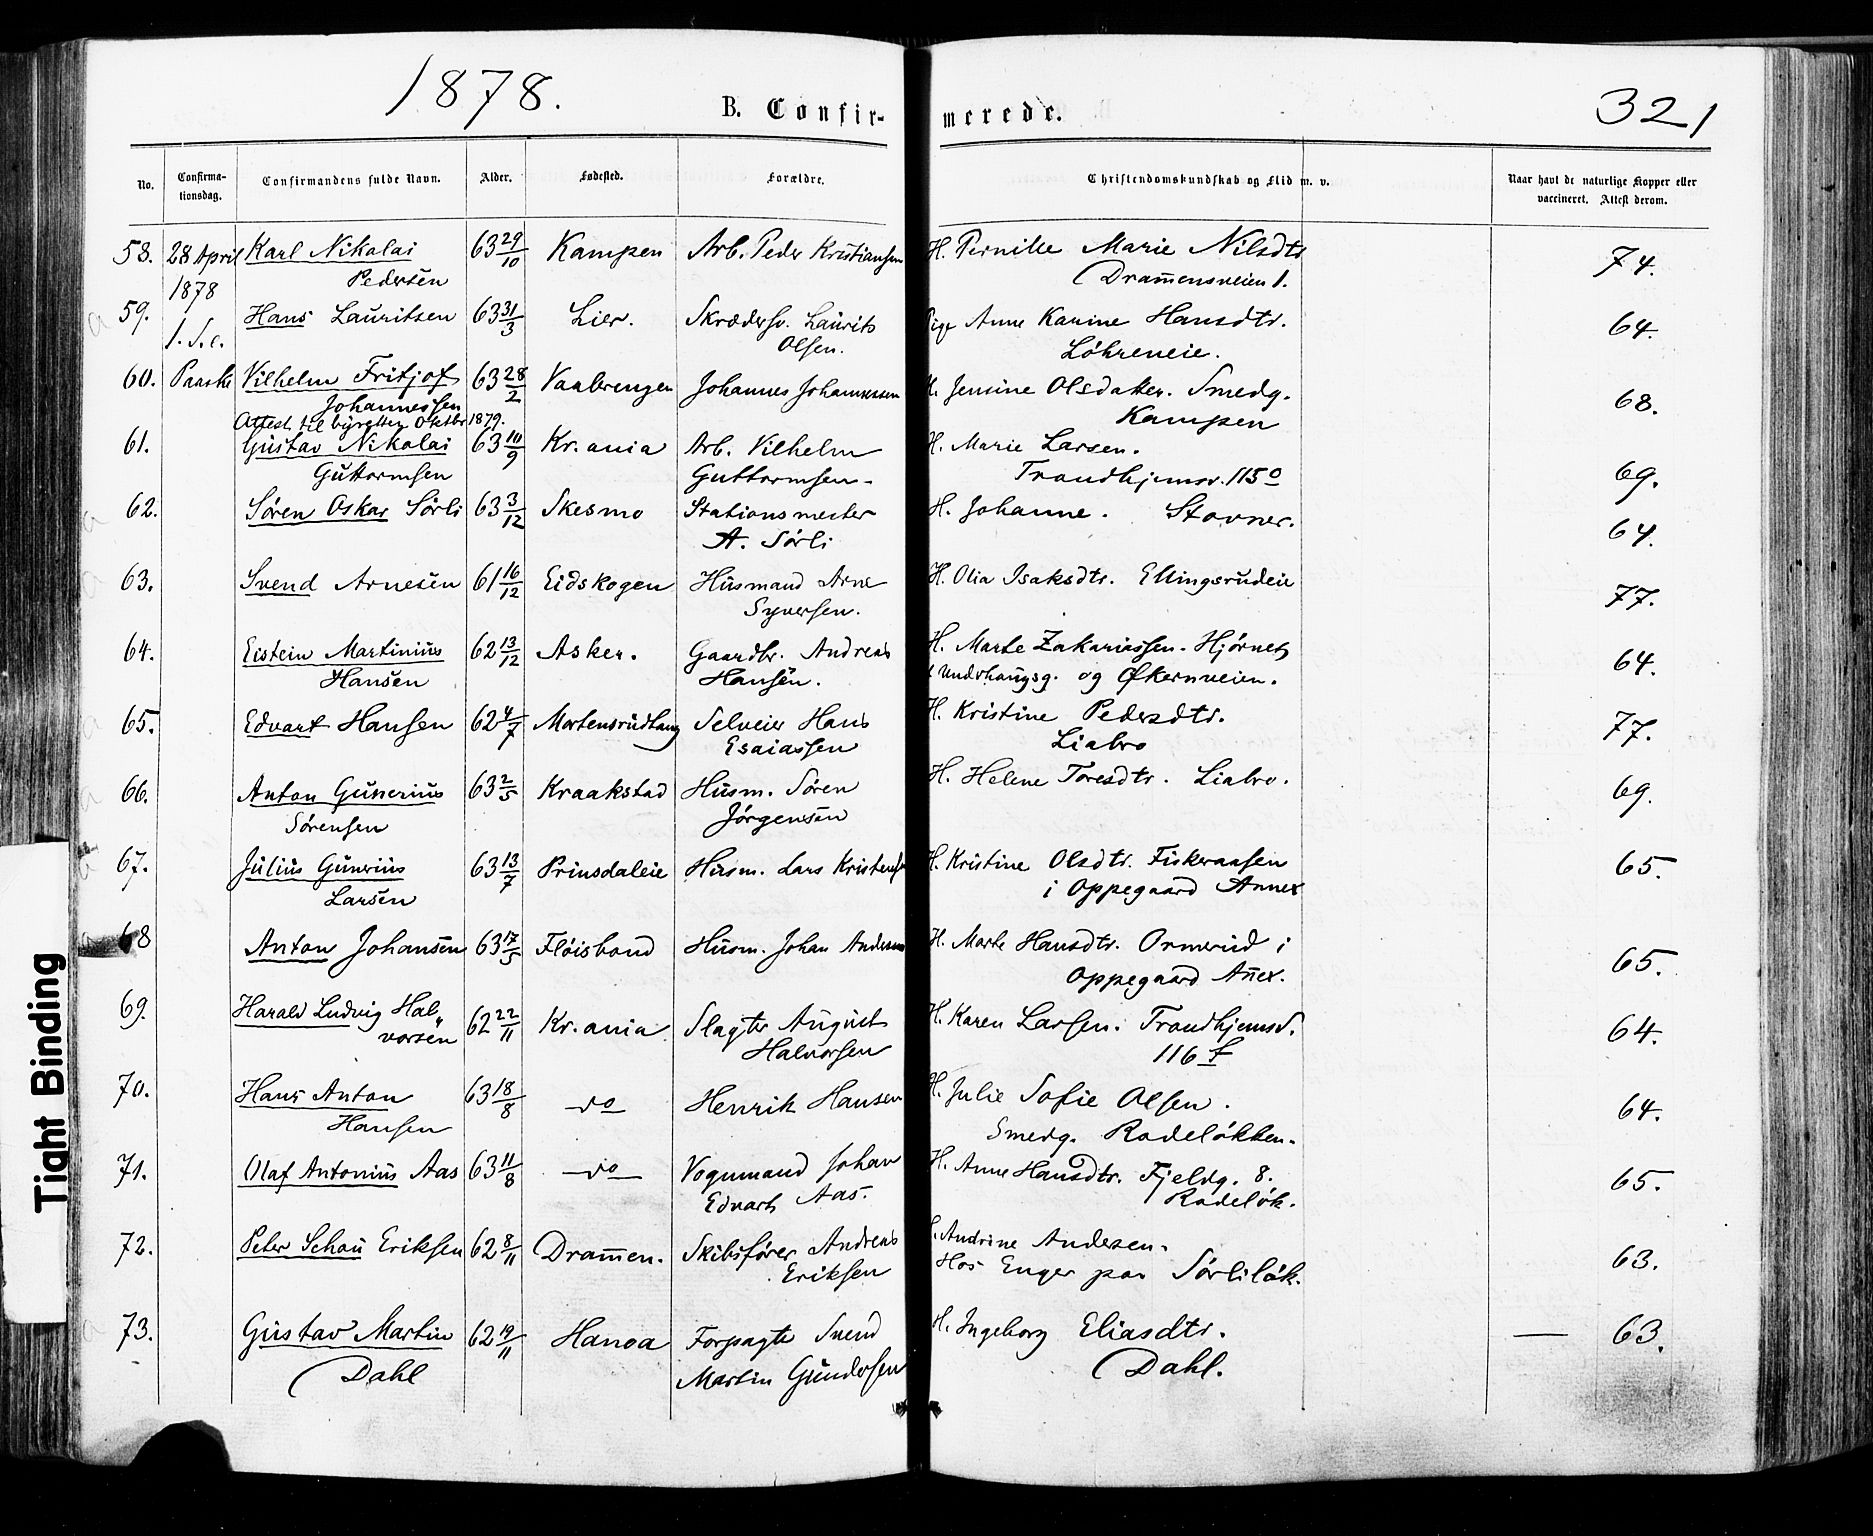 1878.
B. Confirmerede.
321
No. Confirmationsdag. Confirmandens fulde Navn. Alder. Fødested. Forældre. Christendomskundskab og Flid m. v. Naar havt de naturlige Kopper eller vaccineret. Attest derom.
58. 28 April Karl Nikolai 63 29/10 Kampen Arb. Peder Kristiansen H. Pernille Marie Nilsdtr 74.
1878 Pedersen Drammensveien 1.
59. Hans Lauritsen 63 31/3 Lier. Skrædersv. Laurits Pige Anne Karine Hansdtr. 64.
1. S. e. Olsen. Løhreneie.
60. Paaske Vilhelm Fritjof 63 28/2 Vaalerengen Johannes Johannessen H. Jensine Olsdatter. Smedg. 68.
Johannessen Kampen
Attest til byretten Oktbr 1879.
61. Gustav Nikolai 63 10/9 Kr.ania Arb. Vilhelm H. Marie Larsen. 69.
Guttormsen Guttormsen Trondhjemsv. 115
62. Søren Oskar Sørli 63 3/12 Skesmo Stationsmester H. Johanne. Stovner. 64.
A. Sørli
63. Svend Arnesen 61 16/12 Eidskogen Husmand Arne H. Olia Isaksdtr. Ellingsrudeie 77.
Syversen.
64. Eistein Martinius 62 13/12 Asker. Gaardbr. Andreas H. Marte Zakariassen. Hjørnet 64.
Hansen Hansen. Underhaugsg. og Økernveien.
65. Edvart Hansen 62 4/7 Mortensrudhaug Selveier Hans H. Kristine Pedersdtr. 77.
Esaiassen Liabro
66. Anton Gunerius 63 2/5 Kraakstad Husm. Søren H. Helene Toresdtr. Liabro. 69.
Sørensen Jørgensen
67. Julius Gunerius 63 13/7 Prinsdaleie Husm. Lars Kristensen H. Kristine Olsdtr. Fiskeraasen 65.
Larsen i Oppegaard Annex
68 Anton Johansen 63 17/5 Fløisbond Husm. Johan Andersen H. Marte Hansdtr. Ormerud i 65.
Oppegaard Annex.
69. Harald Ludvig Hal- 62 22/11 Kr.ania Slagter August H. Karen Larsen. Trondhjemsv. 64.
vorsen Halvorsen 116 f
70. Hans Anton 63 18/8 do Henrik Hansen H. Julie Sofie Olsen. 64.
Hansen Smedg. Rodeløkken.
71. Olaf Antonius Aas 63 11/8 do Vognmand Johan H. Anne Hansdtr. Fjeldg. 8. 65.
Edvart Aas. Rodeløk.
72. Peter Schou Eriksen 62 8/11 Drammen. Skibsfører Andreas H. Andrine Andersen. 63.
Eriksen Hos Enger paa Sørliløk.
73. Gustav Martin 62 19/11 Hanoa Forpagter Svend H. Ingeborg Eliasdtr. — 63.
Dahl Martin Gundersen Dahl.
Tight Binding